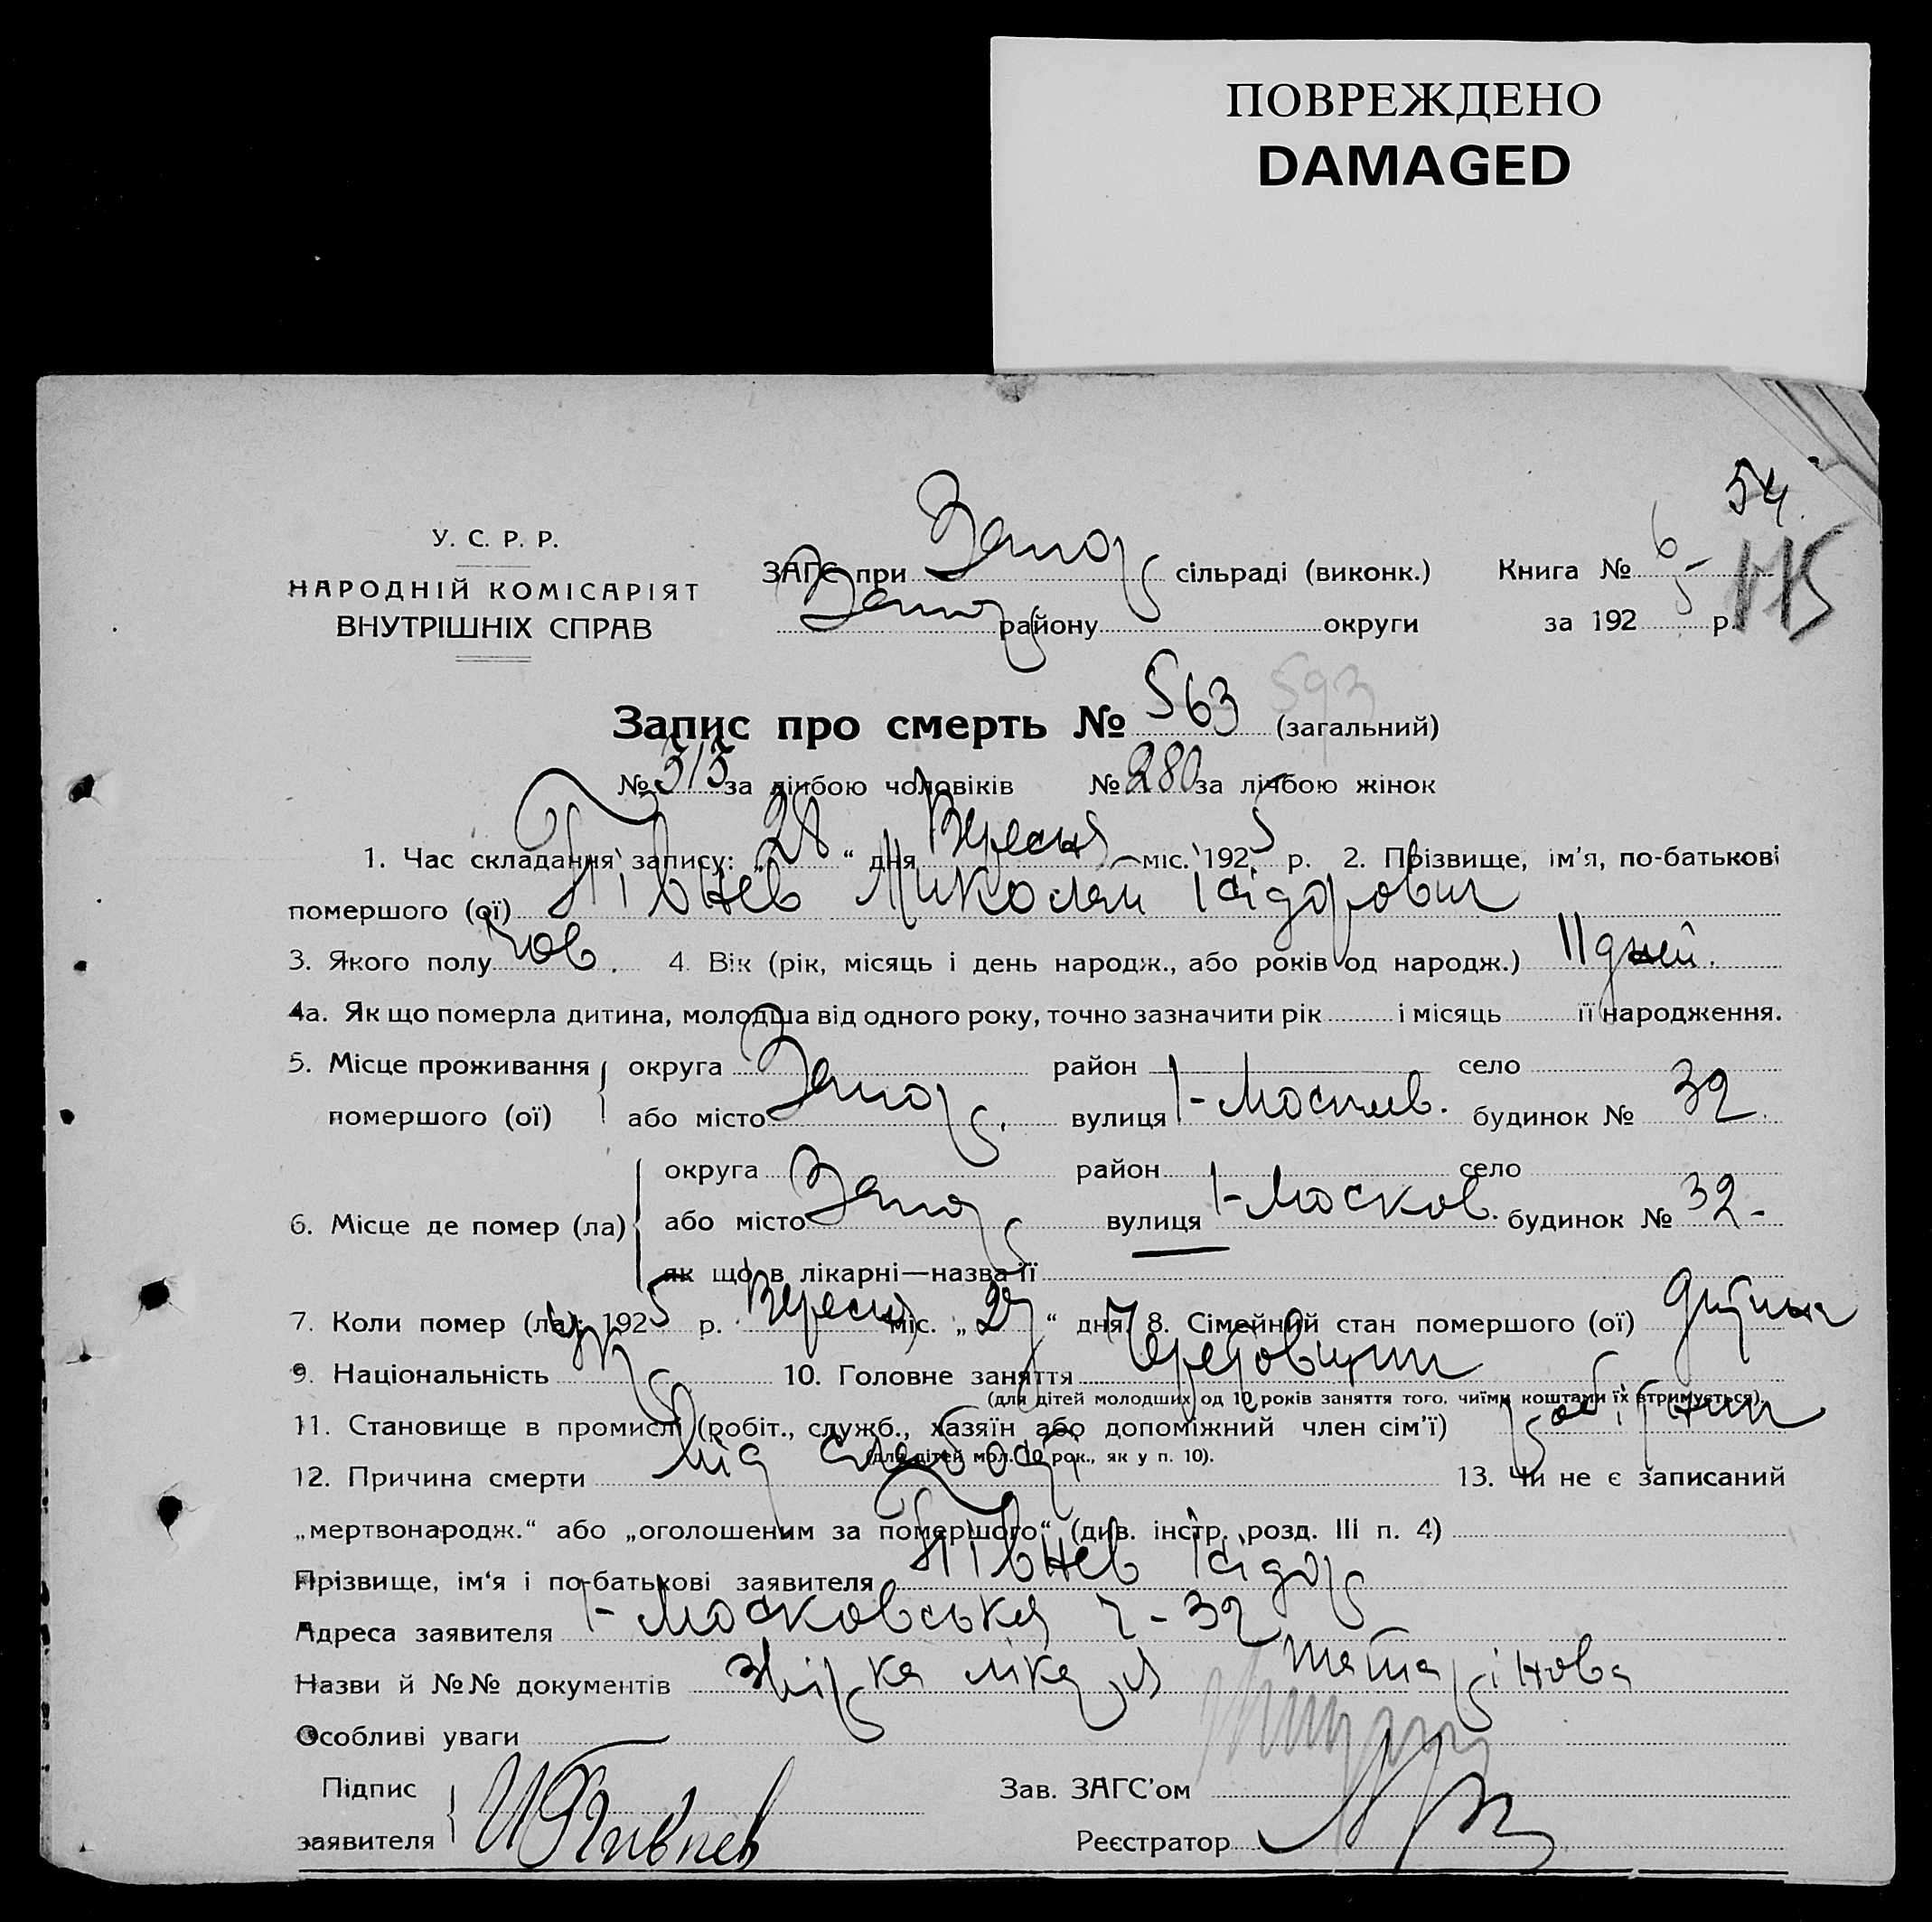 ПОВРЕЖДЕНО
DAMAGED
54
115
У. С. Р. Р.
НАРОДНІЙ КОМІСАРІЯТ
ВНУТРІШНІХ СПРАВ
ЗАГС при Запор сільраді (виконк.) Книга № 6
Запор району округи за 1925 р.
Запис про смерть № 563 593 (загальний)
№ 313 за лічбою чоловіків № 280 за лічбою жінок
1. Час складання запису: „28“ дня Вересня міс. 1925 р. 2. Прізвище, ім’я, по-батькові
помершого (ої) Півнев Миколай Ісідорович
3. Якого полу чов. 4. Вік (рік, місяць і день народж., або років од народж.) 11 дней.
4а. Як що померла дитина, молодша від одного року, точно зазначити рік і місяць її народження.
5. Місце проживання округа район село
помершого (ої) або місто Запор. вулиця 1-Москов. будинок № 32.
округа район село
6. Місце де помер (ла) або місто Запор вулиця 1-Москов. будинок № 32-
як що в лікарні—назва її
7. Коли помер (ла): 1925 р. Вересня міс. „27“ дня 8. Сімейний стан помершого (ої) дитина
9. Національність 10. Головне заняття
(для дітей молодших од 10 років заняття того, чиїми коштами їх втримується).
11. Становище в промислі (робіт., служб., хазяїн або допоміжний член сім’ї)
(для дітей мол. 10 рок., як у п. 10).
12. Причина смерти від слабости 13. Чи не є записаний
„мертвонародж.“ або „оголошеним за помершого“ (див. інстр. розд. III п. 4)
Прізвище, ім‘я і по-батькові заявителя Півнев Ісідор
Адреса заявителя 1-Московська ч-32
Назви й №№ документів лікаря Татарінова
Особливі уваги
Підпис Зав. ЗАГС’ом
заявителя И Пивнев Реєстратор